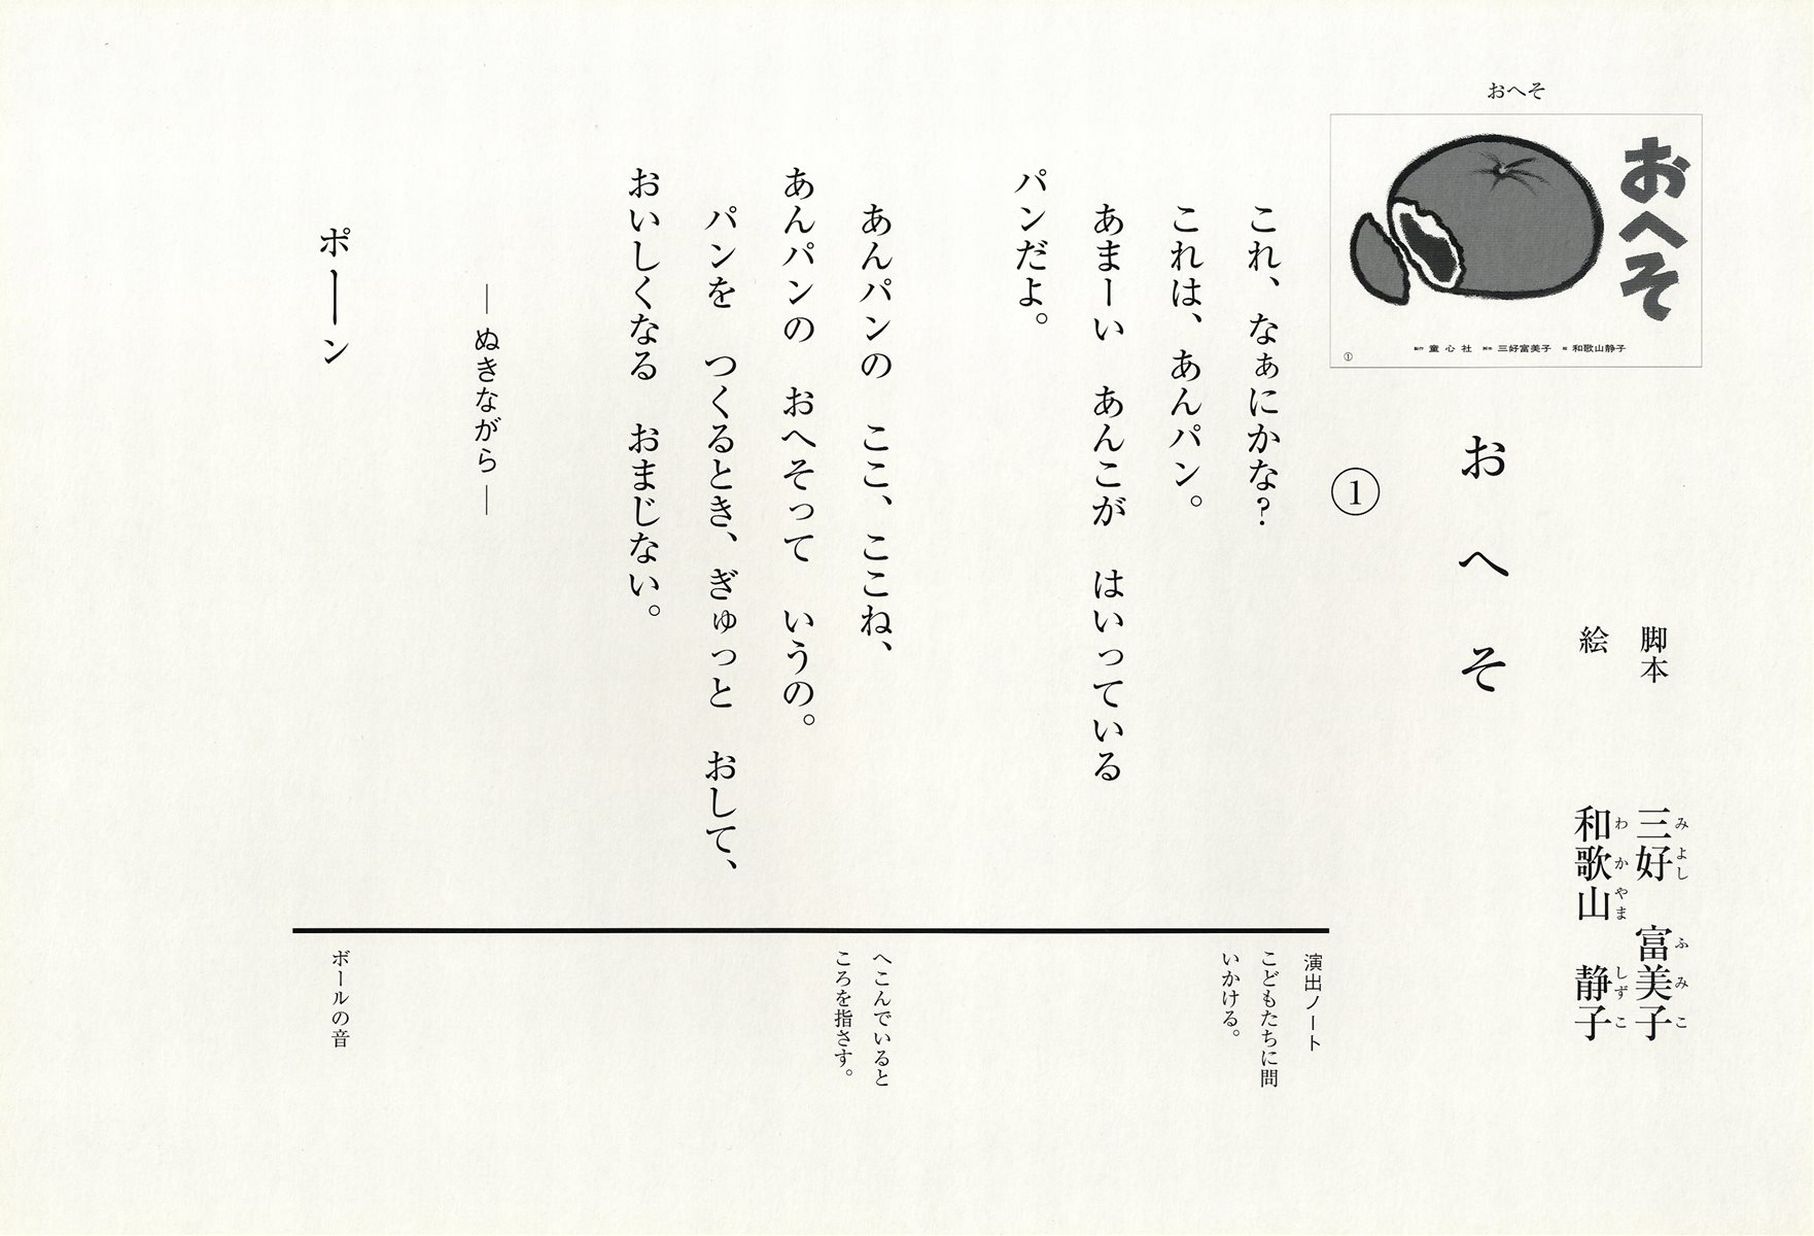 おへそ
おへそ
製作 童心社 脚本 三好富美子 絵 和歌山静子
①
脚本 三好 富美子
みよし ふみこ
絵 和歌山 静子
わかやま しずこ
おへそ
①
これ、なぁにかな?
これは、あんパン。
あまーい あんこが はいっている
パンだよ。
あんパンの ここ、ここね、
あんパンの おへそって いうの。
パンを つくるとき、ぎゅっと おして、
おいしくなる おまじない。
―ぬきながら―
ポ――ン
演出ノート
こどもたちに問
いかける。
へこんでいると
ころを指さす。
ボールの音